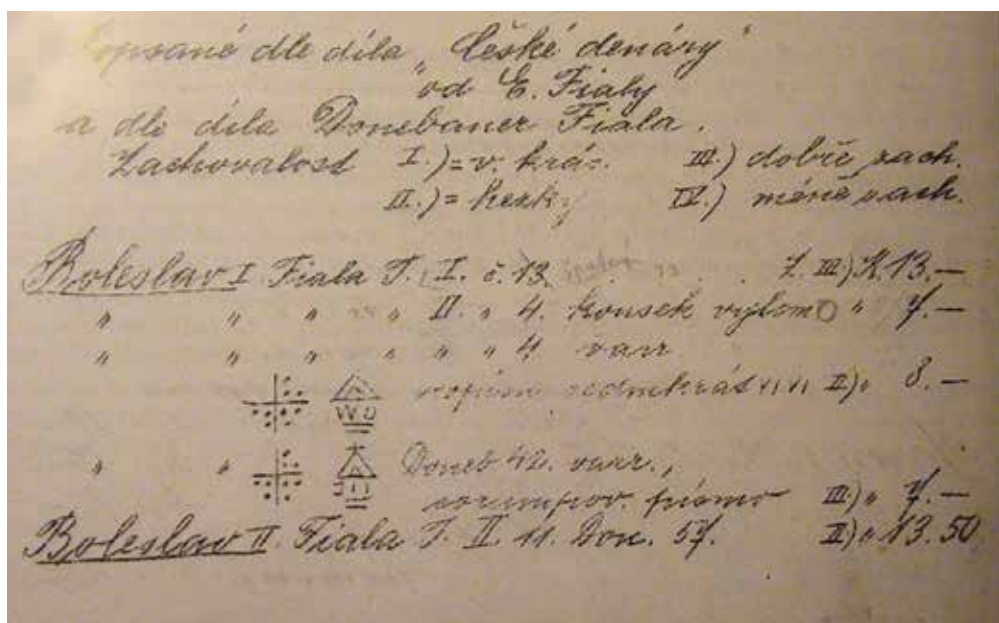 dle díla „České denáry"
od E. Fialy
a dle díla Donebauer Fiala.
Zachovalost I.) = v. krás. III.) dobře zach.
II.) = hezky IV.) méně zach.
Boleslav I. Fiala T. I. č. 13. Z. III) K 13.—
" " " " II. " 4. kousek vylom " 7.—
" " " " " " 4 varr
sedmkrát II) " 8.—
" " Doneb 42. varr.,
písmo III.) " 7.—
Boleslav II. Fiala T. II. 11. Don. 57. II) " 13.50